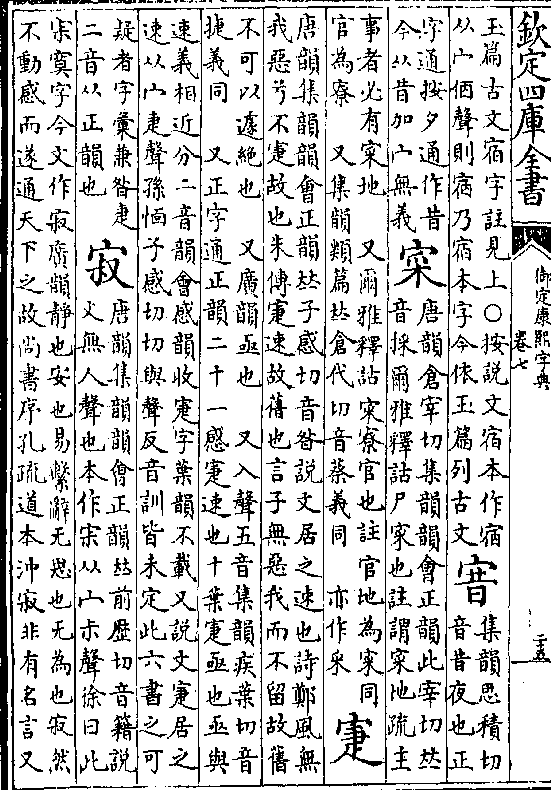 欽定四庫全書
御定康熙字典
卷七
二十五
玉篇古文宿字註見上○按說文宿本作宿
从宀㐁聲則㝛乃宿本字今依玉篇列古文
㝳
集韻思積切
音昔夜也正
字通按夕通作昔
今从昔加宀無義
寀
唐韻倉宰切集韻韻會正韻此宰切𠀤
音採爾雅釋詁尸寀也註謂寀地疏主
事者必有寀地 又爾雅釋詁寀寮官也註官地為寀同
官為寮 又集韻類篇𠀤倉代切音蔡義同 亦作采
寁
唐韻集韻韻會正韻𠀤子感切音昝說文居之速也詩鄭風無
我惡兮不寁故也朱傳寁速故舊也言子無惡我而不留故舊
不可以遽絶也 又廣韻亟也 又入聲五音集韻疾葉切音
捷義同 又正字通正韻二十一感寁速也十葉寁亟也亟與
速義相近分二音韻會感韻收寁字葉韻不載又說文寁居之
速从宀疌聲孫愐子感切切與聲反音訓皆未定此六書之可
疑者字彙兼昝疌
二音从正韻也
寂
唐韻集韻韻會正韻𠀤前歷切音籍說
文無人聲也本作宋从宀尗聲徐曰此
㝕寞字今文作寂廣韻靜也安也易繫辭无思也无為也寂然
不動感而遂通天下之故尚書序孔疏道本沖寂非有名言又